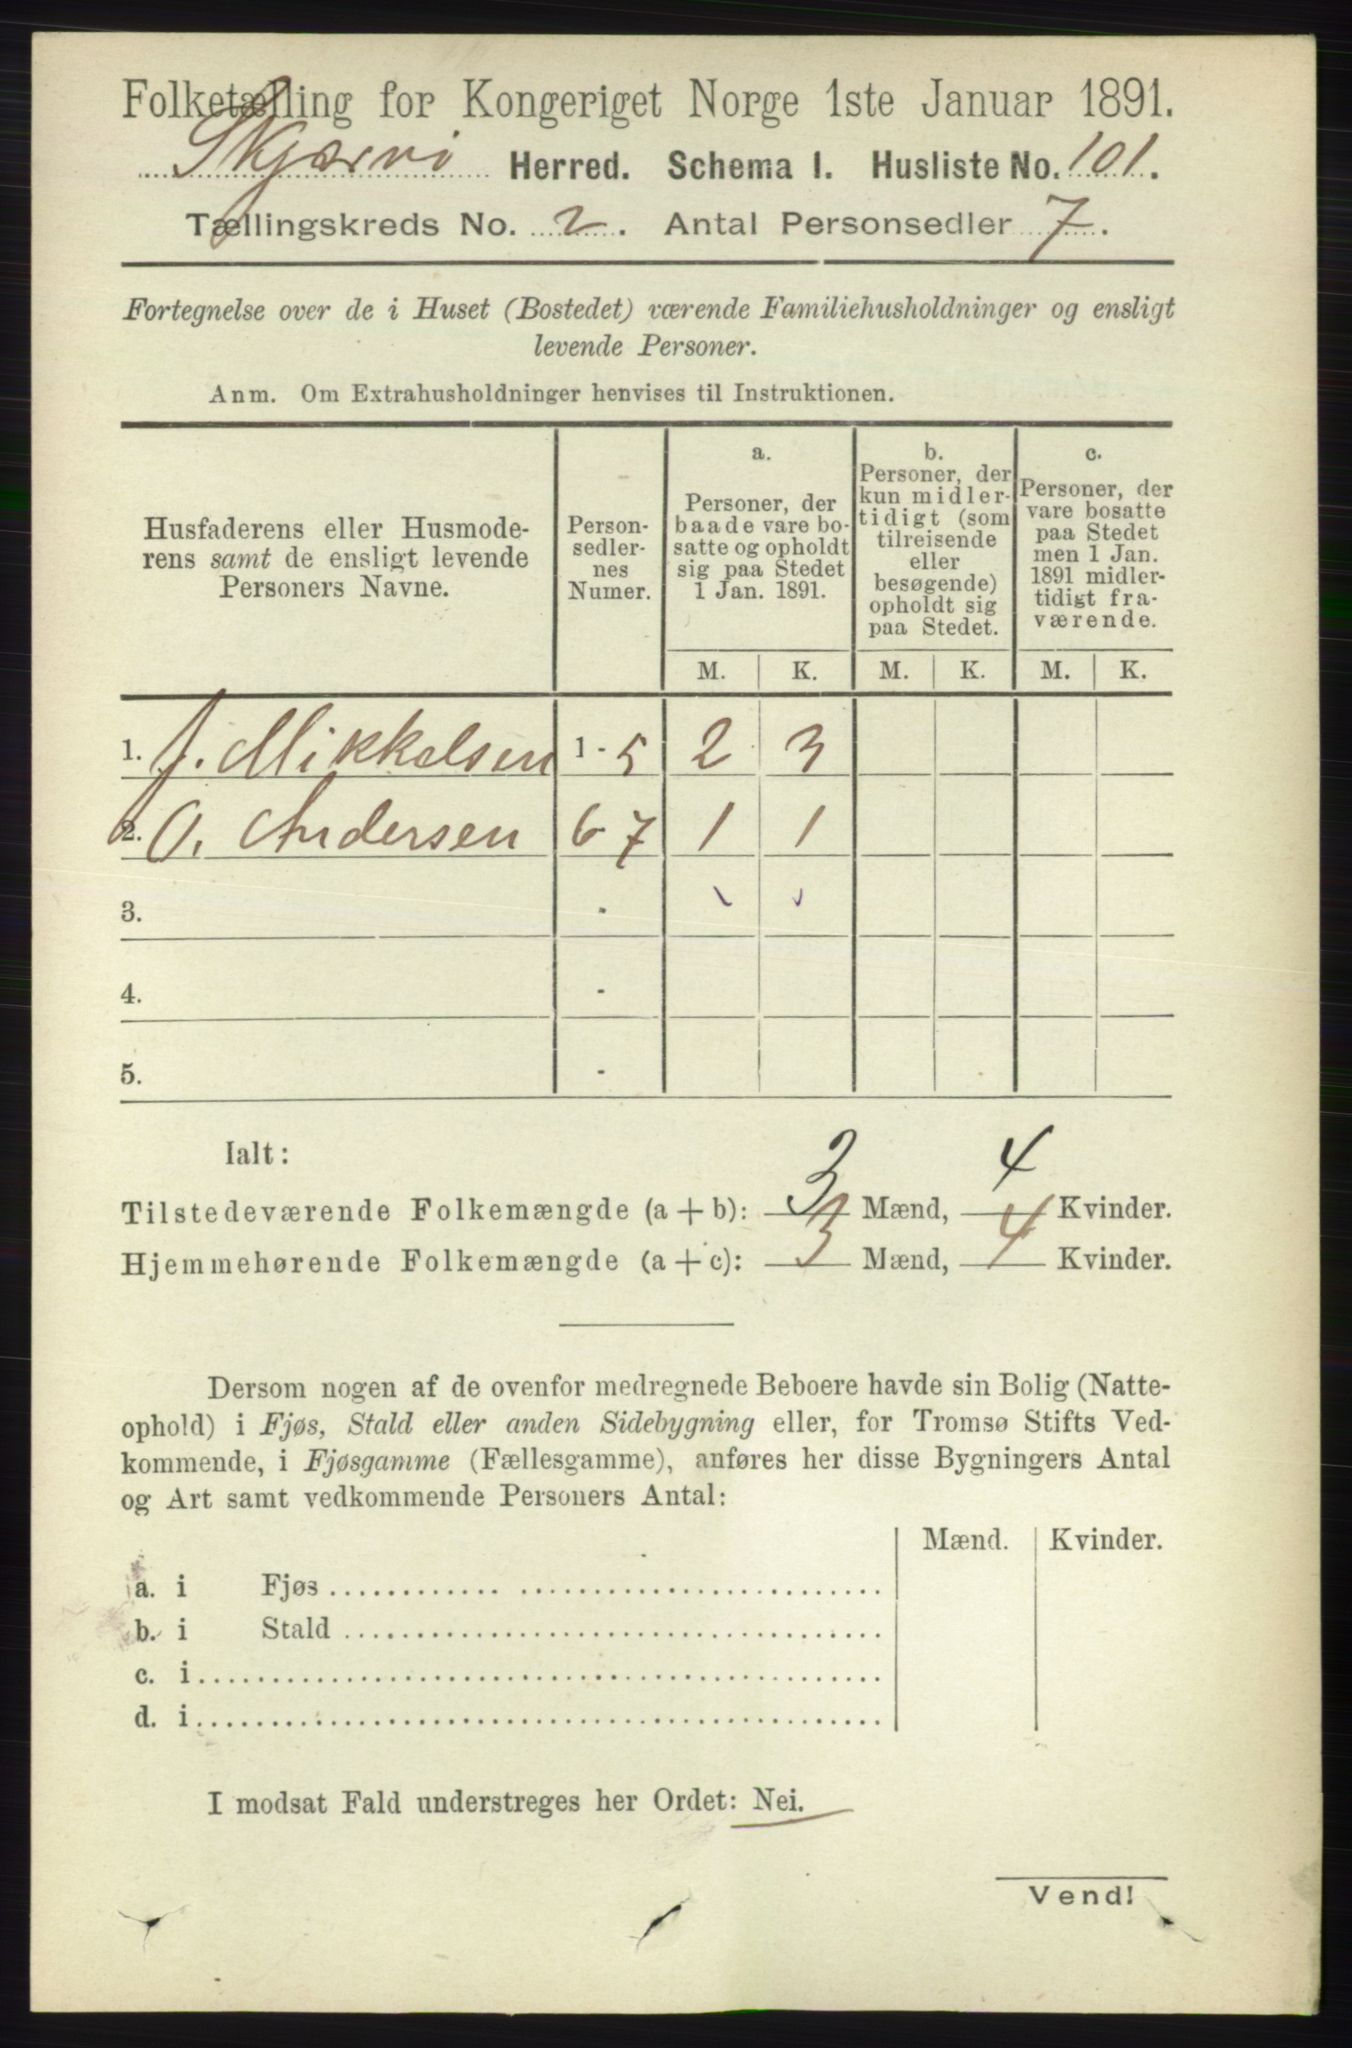 Folketælling for Kongeriget Norge 1ste Januar 1891.
Skjærvø Herred. Schema I. Husliste No. 101.
Tællingskreds No. 2. Antal Personsedler 7.
Fortegnelse over de i Huset (Bostedet) værende Familiehusholdninger og ensligt
levende Personer.
Anm. Om Extrahusholdninger henvises til Instruktionen.
Husfaderens eller Husmode-
rens samt de ensligt levende
Personers Navne.
Person-
sedler-
nes
Numer.
a.
Personer, der
baade vare bo-
satte og opholdt
sig paa Stedet
1 Jan. 1891.
b.
Personer, der
kun midler-
tidigt (som
tilreisende
eller
besøgende)
opholdt sig
paa Stedet.
c.
Personer, der
vare bosatte
paa Stedet
men 1 Jan.
1891 midler-
tidigt fra-
værende.
M. K. M. K. M. K.
1. J. Mikkelsen 1 - 5 2 3
2. O. Andersen 6 7 1 1
3. -
4. -
5. -
Ialt:
3 4
Tilstedeværende Folkemængde (a + b): 3 Mænd, 4 Kvinder.
Hjemmehørende Folkemængde (a + c): Mænd, Kvinder.
Dersom nogen af de ovenfor medregnede Beboere havde sin Bolig (Natte-
ophold) i Fjøs, Stald eller anden Sidebygning eller, for Tromsø Stifts Ved-
kommende, i Fjøsgamme (Fællesgamme), anføres her disse Bygningers Antal
og Art samt vedkommende Personers Antal:
Mænd. Kvinder.
a. i Fjøs
b. i Stald
c. i
d. i
I modsat Fald understreges her Ordet: Nei.
Vend!